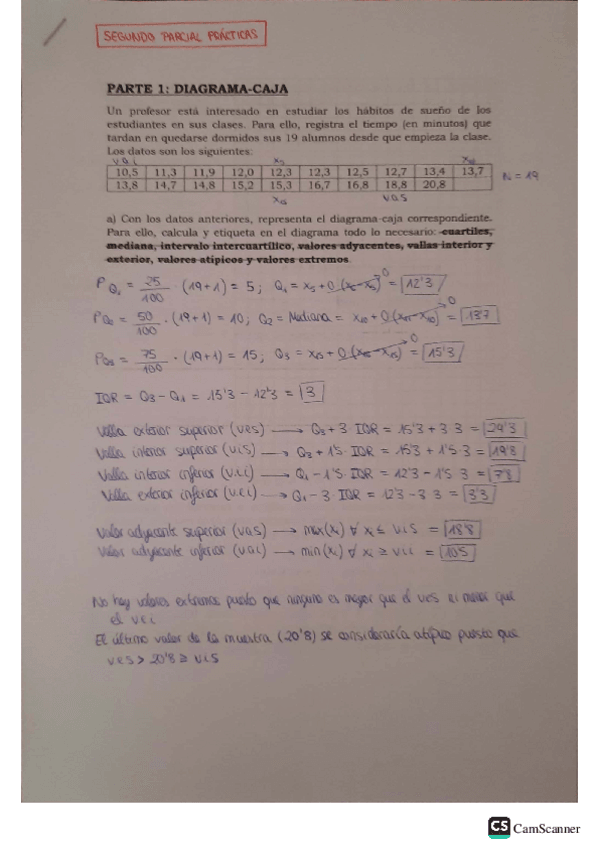 SEGUNDO PARCIAL PRÁCTICAS
PARTE 1: DIAGRAMA-CAJA
Un profesor está interesado en estudiar los hábitos de sueño de los
estudiantes en sus clases. Para ello, registra el tiempo (en minutos) que
tardan en quedarse dormidos sus 19 alumnos desde que empieza la clase.
Los datos son los siguientes:
v.a.i x₅ x₁₀
10,5 11,3 11,9 12,0 12,3 12,3 12,5 12,7 13,4 13,7
N = 19
13,8 14,7 14,8 15,2 15,3 16,7 16,8 18,8 20,8
x₁₅ v.a.s
a) Con los datos anteriores, representa el diagrama-caja correspondiente.
Para ello, calcula y etiqueta en el diagrama todo lo necesario: cuartiles,
mediana, intervalo intercuartílico, valores adyacentes, vallas interior y
exterior, valores atípicos y valores extremos.
P Q₁ = 25/100 · (19+1) = 5; Q₁ = x₅ + 0 (x₆-x₅) → 0 = 12'3
P Q₂ = 50/100 · (19+1) = 10; Q2 = Mediana = x₁₀ + 0 (x₁₁-x₁₀) → 0 = 13'7
P Q₃ = 75/100 · (19+1) = 15; Q₃ = x₁₅ + 0 (x₁₆-x₁₅) → 0 = 15'3
IQR = Q₃ - Q₁ = 15'3 - 12'3 = 3
Valla exterior superior (ves) → Q₃ + 3 · IQR = 15'3 + 3·3 = 24'3
Valla interior superior (vis) → Q₃ + 1'5 · IQR = 15'3 + 1'5·3 = 19'8
Valla interior inferior (vii) → Q₁ - 1'5 · IQR = 12'3 - 1'5·3 = 7'8
Valla exterior inferior (vei) → Q₁ - 3 · IQR = 12'3 - 3·3 = 3'3
Valor adyacente superior (vas) → max(xᵢ) ∀ xᵢ ≤ vis = 18'8
Valor adyacente inferior (vai) → min(xᵢ) ∀ xᵢ ≥ vii = 10'5
No hay valores extremos puesto que ninguno es mayor que el ves ni menor que
el vei
El último valor de la muestra (20'8) se consideraría atípico puesto que
ves > 20'8 ≥ vis
CS CamScanner